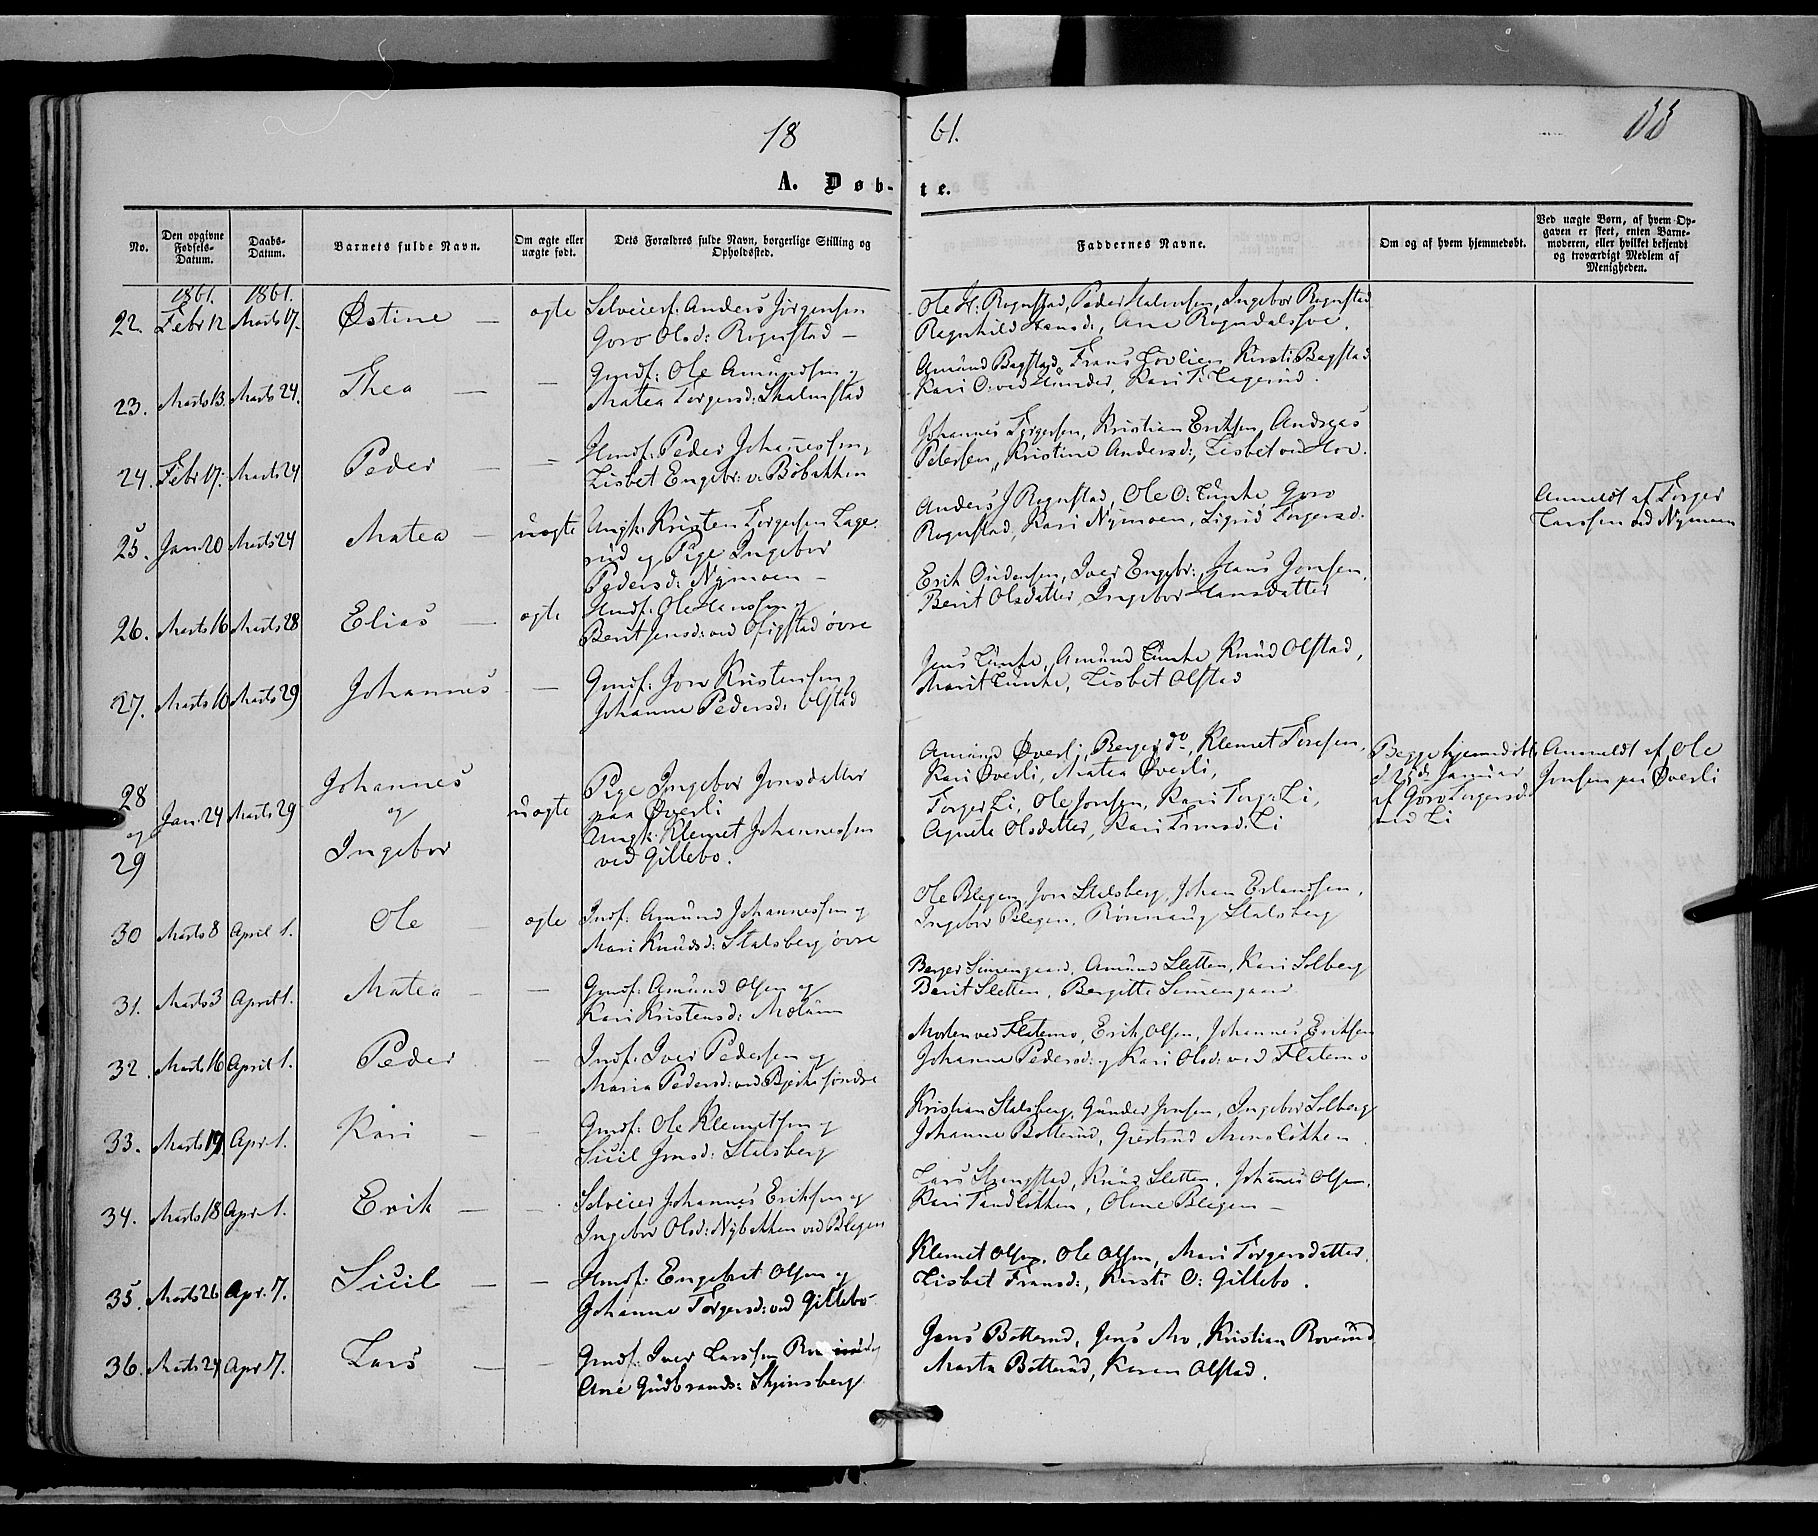 18 61. 33
A. Døb- te.
No.
Den opgivne Fødsels-Datum.
Daabs-Datum.
Barnets fulde Navn.
Om ægte eller uægte født.
Dets Forældres fulde Navn, borgerlige Stilling og Opholdssted.
Faddernes Navne.
Om og af hvem hjemmedøbt.
Ved uægte Børn, af hvem Opgaven er skeet, enten Barnemoderen, eller hvilket bekjendt og troværdigt Medlem af Menigheden.
1861. 1861.
22. Febr 12 Marts 17. Østine — ægte Selveier: Anders Jörgensen
Goro Olsd: Rognstad —
Ole H: Rognstad, Peder Halvorsen, Ingebor Rognstad
Ragnhild Hansd:, Ane Rogndalshoe.
23. Marts 13. Marts 24. Thea — — Gmdf: Ole Amundsen og
Matea Torgersd: Skalmstad
Amund Bagstad, Frans Lovlien, Kirsti Bagstad
Kari O: ved Hunder, Kari T: Lagerud.
24. Febr 17. Marts 24 Peder — — Hmdf: Peder Johannessen,
Lisbet Engebr: v. Bøbakken
Johannes Torgersen, Kristian Eriksen, Andreas
Petersen, Kristine Andersd:, Lisbet ved Hov.
25. Jan. 20 Marts 24 Matea — uægte Ungk: Kristen Torgersen Lage-
rud og Pige Ingebor
Pedersd: Nymoen —
Anders J Rognstad, Ole O: Lunke, Goro
Rognstad, Kari Nymoen, Sigrid Torgersd:
Anmeldt af Torger
Larssen ved Nymoen
26. Marts 16 Marts 28 Elias — ægte Hmdf: Ole Hanssen og
Berit Jensd: ved Ofigstad øvre
Erik Gudersen, Iver Engebr:, Hans Jonsen,
Berit Olsdatter, Ingebor Hansdatter
27. Marts 10 Marts 29 Johannes — Gmdf: Jon Kristensen og
Johanne Pedersd: Olstad
Jens Lunke, Amund Lunke Knud Olstad,
Marit Lunke, Lisbet Olstad
28 og 29 Jan. 24 Marts 29 Johannes
og
Ingebor
uægte
Pige Ingebor Jonsdatter
paa Øverli
Ungk: Klemet Johannessen
ved Gillebo.
Amund Øverli, Berger do, Klemet Toresen,
Kari Øverli, Matea Øverli,
Torger Li, Ole Jonsen, Kari Torg: Li,
Agnete Olsdatter, Kari Tronsd: Li
Begge hjemmedøbt
d 25de Januar
af Goro Torgersd:
ved Li
Anmeldt af Ole
Jonsen paa Øverli
30 Marts 8 April 1. Ole — ægte Indf: Amund Johannessen og
Mari Knudsd: Stalsberg øvre
Ole Blegen, Jon Stalsberg, Johan Erlandsen,
Ingebor Blegen, Rønnaug Stalsberg
31. Marts 3 April 1. Matea — — Gmdf: Amund Olsen og
Kari Kristensd: Moluin
Berger Simengaard, Amund Sletten, Kari Solberg
Berit Sletten, Bergitte Simengaard
32. Marts 16 April 1. Peder — Indf: Iver Pedersen og
Maria Pedersd: ved Bjerke søndre
Morten ved Flatemo, Erik Olsen, Johannes Eriksen
Johanne Pedersd: og Kari Olsd: ved Flatemo
33. Marts 19 Apr. 1. Kari — — Gmdf: Ole Klemetsen og
Sicil Jonsd: Stalsberg
Kristian Stalsberg, Gunder Jonsen, Ingebor Solberg
Johanne Botterud, Giertrud Moneløkken
34. Marts 18 Apr 1. Erik — — Selveier Johannes Eriksen og
Ingebor Olsd: Nybakken ved Blegen
Lars Stangstad, Knud Sletten, Johannes Olsen,
Kari Sandløkken, Oline Blegen —
35. Marts 26 Apr. 7. Sicil — — Hmdf: Engebret Olsen og
Johanne Torgersd: ved Gillebo
Klemet Olsen, Ole Olsen, Mari Torgersdatter,
Lisbet Fransd:, Kirsti O: Gillebo.
36. Marts 24 Apr 7. Lars — — Gmdf: Iver Larssen
Ane Gudbrands: Skjonsberg
Jens Botterud, Jens Mo, Kristian Roverud
Marta Botterud, Karen Olstad.